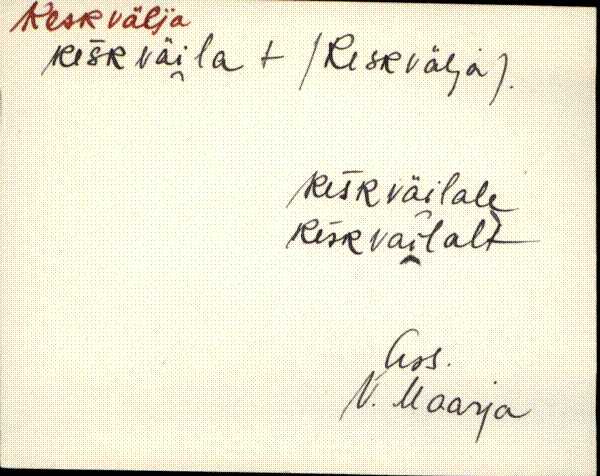 Keskvälja
kèš̄kväi̭la + (Keskvälja).
keš̄kväilale
keš̄kväi̭lalt
Ass.
V. Maarja